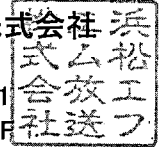 式会社
浜松エフ
エム放送
株式会社
1
F